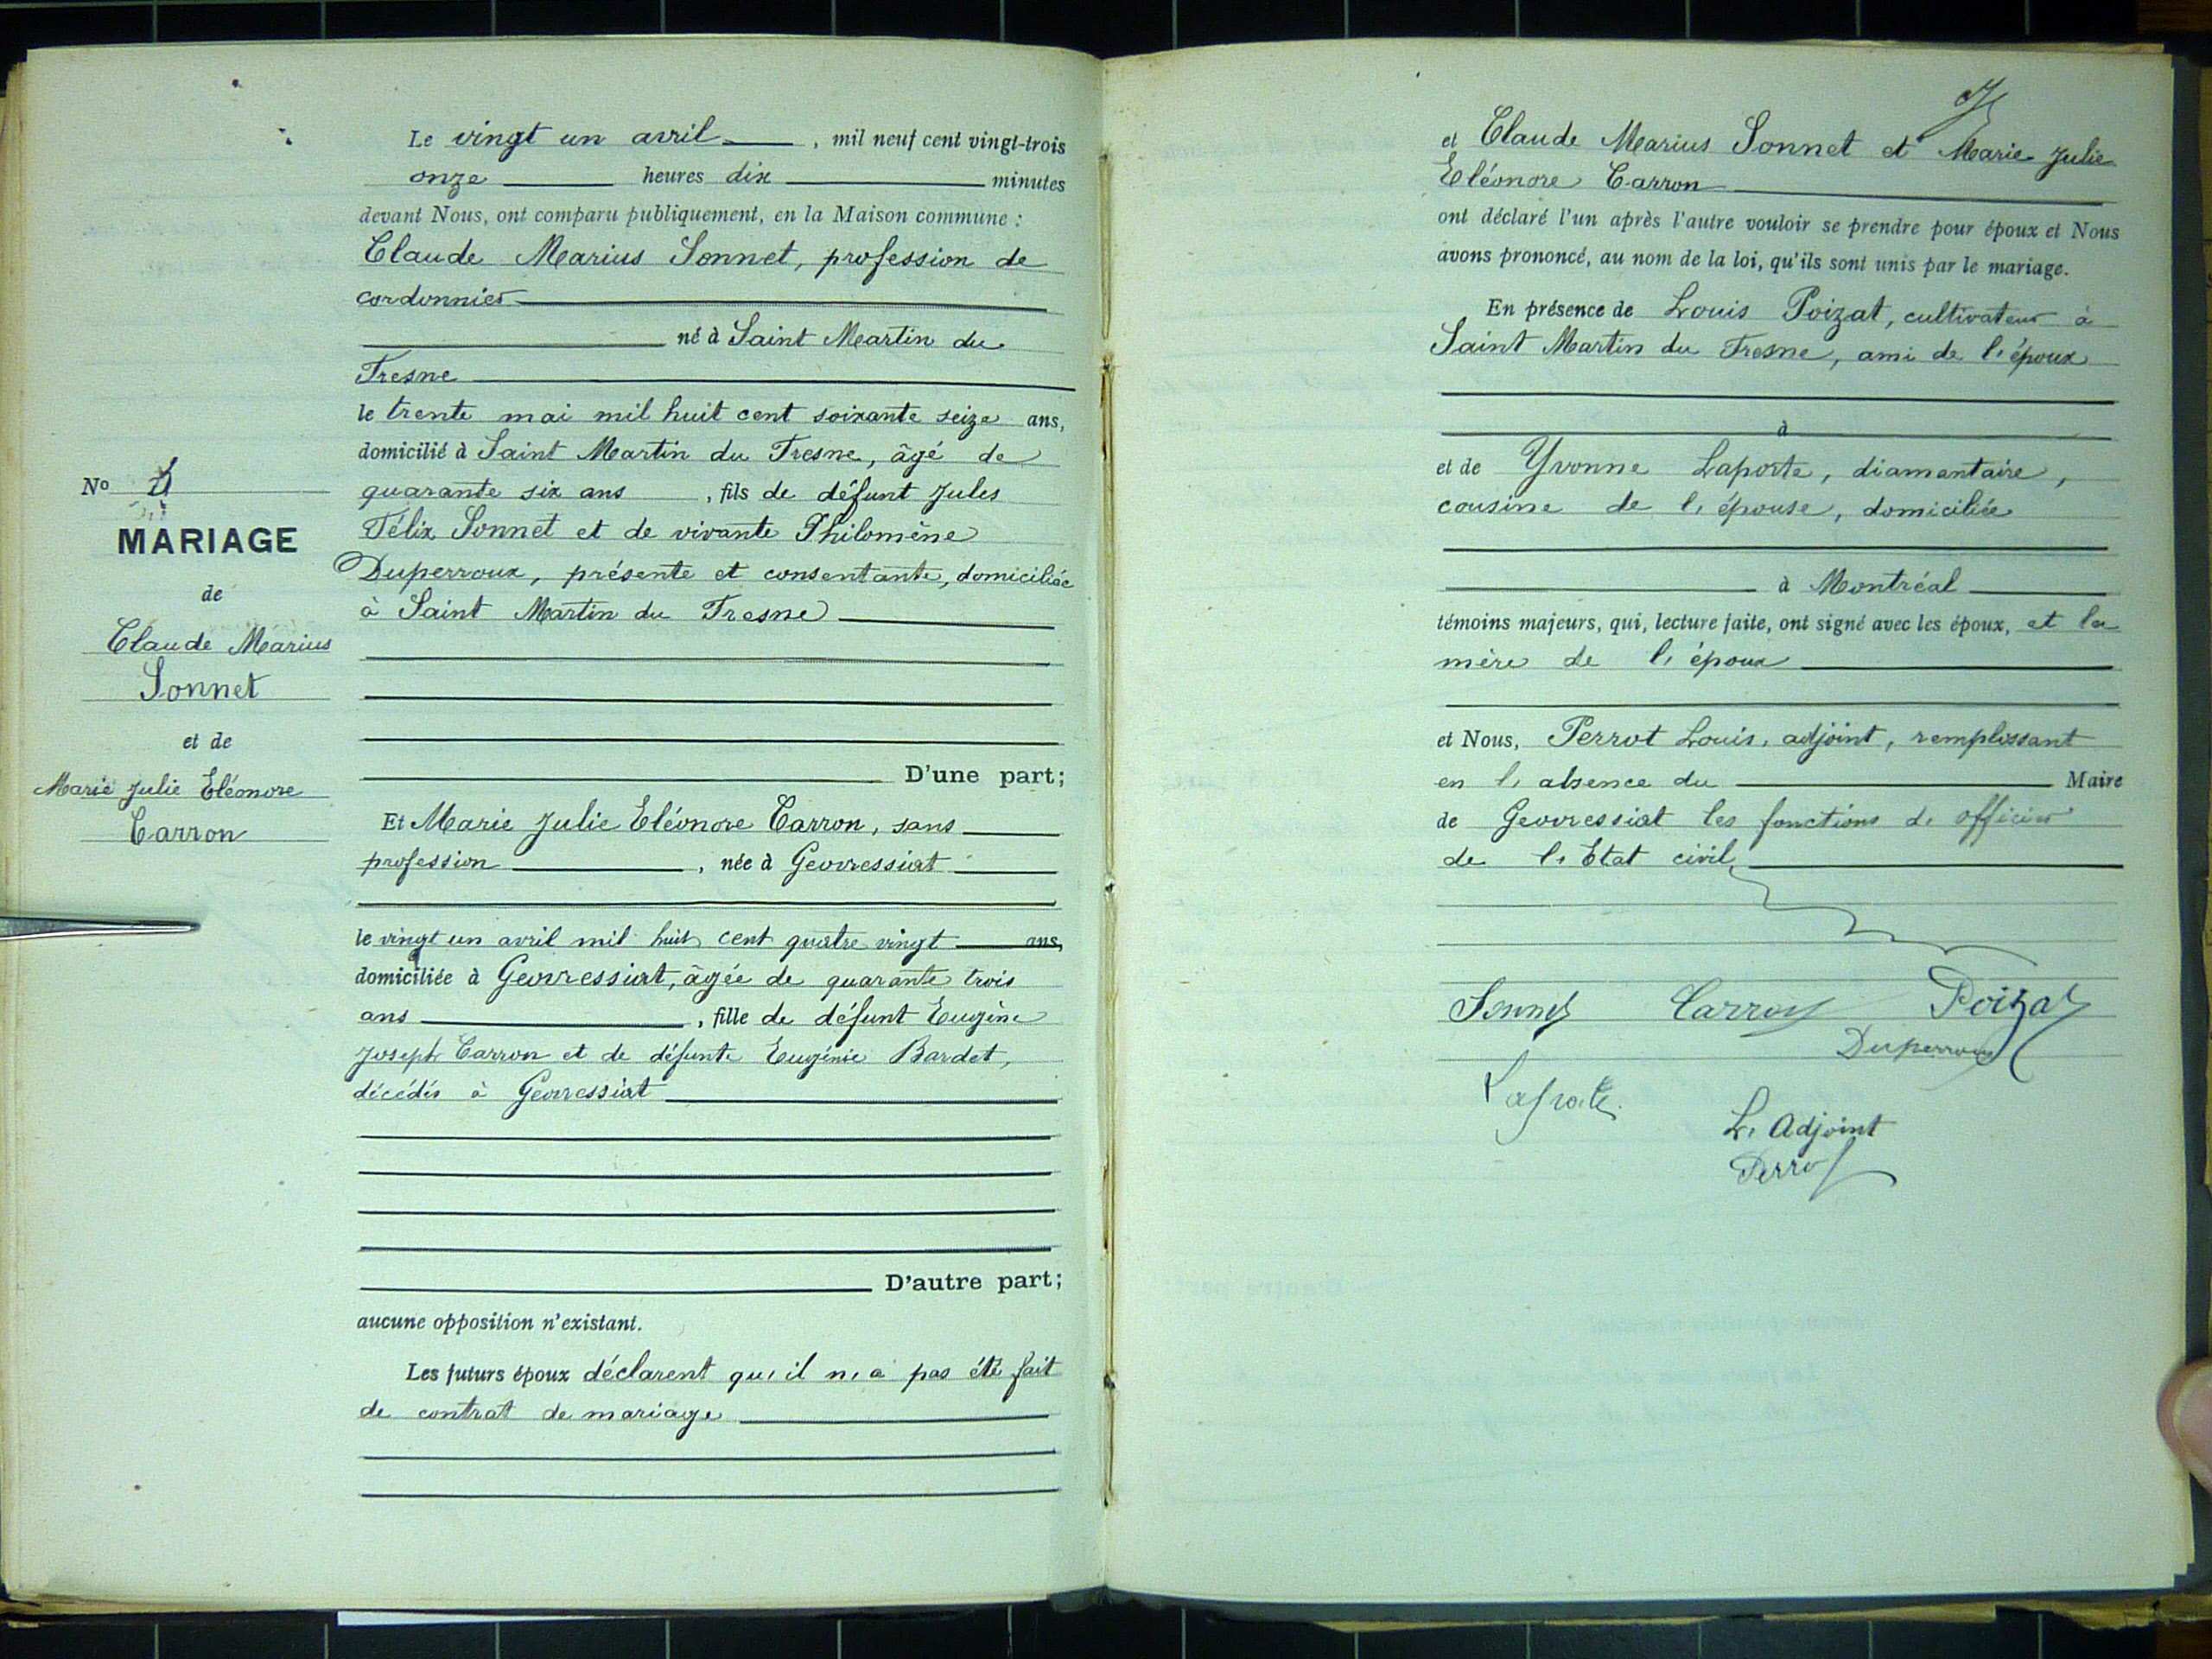 Le vingt un avril, mil neuf cent vingt-trois
onze heures dix minutes
devant Nous, ont comparu publiquement, en la Maison commune :
Claude Marius Sonnet, profession de
cordonnier
né à Saint Martin du
Fresne
le trente mai mil huit cent soixante seize ans,
domicilié à Saint Martin du Fresne, âgé de
quarante six ans, fils de défunt Jules
Félix Sonnet et de vivante Philomène
Duperroux, présente et consentante, domiciliée
à Saint Martin du Fresne
D'une part;
Et Marie Julie Eléonore Carron, sans
profession, née à Geovressiat
le vingt un avril mil huit cent quatre vingt ans,
domiciliée à Geovressiat, âgée de quarante trois
ans, fille de défunt Eugène
Joseph Carron et de défunte Eugénie Bardet,
décédés à Geovressiat
D'autre part;
aucune opposition n'existant.
Les futurs époux déclarent qu'il n'a pas été fait
de contrat de mariage
No
MARIAGE
de
Claude Marius
Sonnet
et de
Marie Julie Eléonore
Carron
et Claude Marius Sonnet et Marie Julie
Eléonore Carron
ont déclaré l'un après l'autre vouloir se prendre pour époux et Nous
avons prononcé, au nom de la loi, qu'ils sont unis par le mariage.
En présence de Louis Poizat, cultivateur à
Saint Martin du Fresne, ami de l'époux
à
et de Yvonne Laporte, diamantaire,
cousine de l'épouse, domiciliée
à Montréal
témoins majeurs, qui, lecture faite, ont signé avec les époux, et la
mère de l'époux
et Nous, Perrot Louis, adjoint, remplissant
en l'absence du Maire
de Geovressiat les fonctions d'officier
de l'Etat civil
Sonnet Carron Poizat
Duperroux
Laporte
L'Adjoint
Perrot